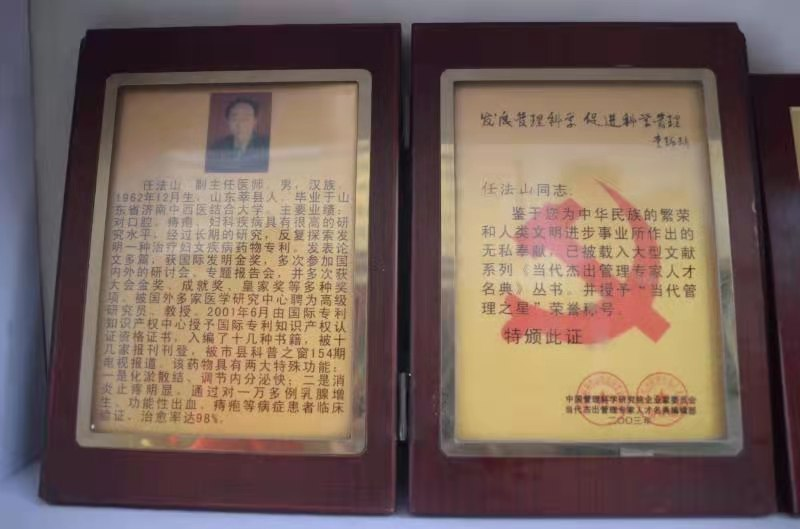 任法山，副主任医师，男，汉族，
1962年12月生，山东莘县人，毕业于山
东省济南中西医结合大学。主要业绩：
对口腔、痔疮、妇科疾病具有很高的研
究水平，经过长期的研究，反复探索发
明一种治疗妇女疾病药物专利。发表论
文多篇，获国际发明金奖，多次参加国
内外的研讨会、专题报告会，并多次获
大会金奖、成就奖、皇家奖等多种奖
项。被国外多家医学研究中心聘为高级
研究员、教授。2001年6月由国际专利
知识产权中心授予国际专利知识产权认
证资格证书，入编了十几种书籍，被十
几家报刊刊登，被市县科普之窗154期
电视报道。该药物具有两大特殊功能：
一是化淤散结、调节内分泌快；二是消
炎止疼明显。通过对一万多例乳腺增
生、功能性出血、痔疮等病症患者临床
验证，治愈率达98%。
发展管理科学 促进科学管理
任法山同志：
鉴于您为中华民族的繁荣
和人类文明进步事业所作出的
无私奉献，已被载入大型文献
系列《当代杰出管理专家人才
名典》丛书。并授予“当代管
理之星”荣誉称号。
特颁此证
中国管理科学研究院企业家委员会
当代杰出管理专家人才名典编辑部
二○○三年